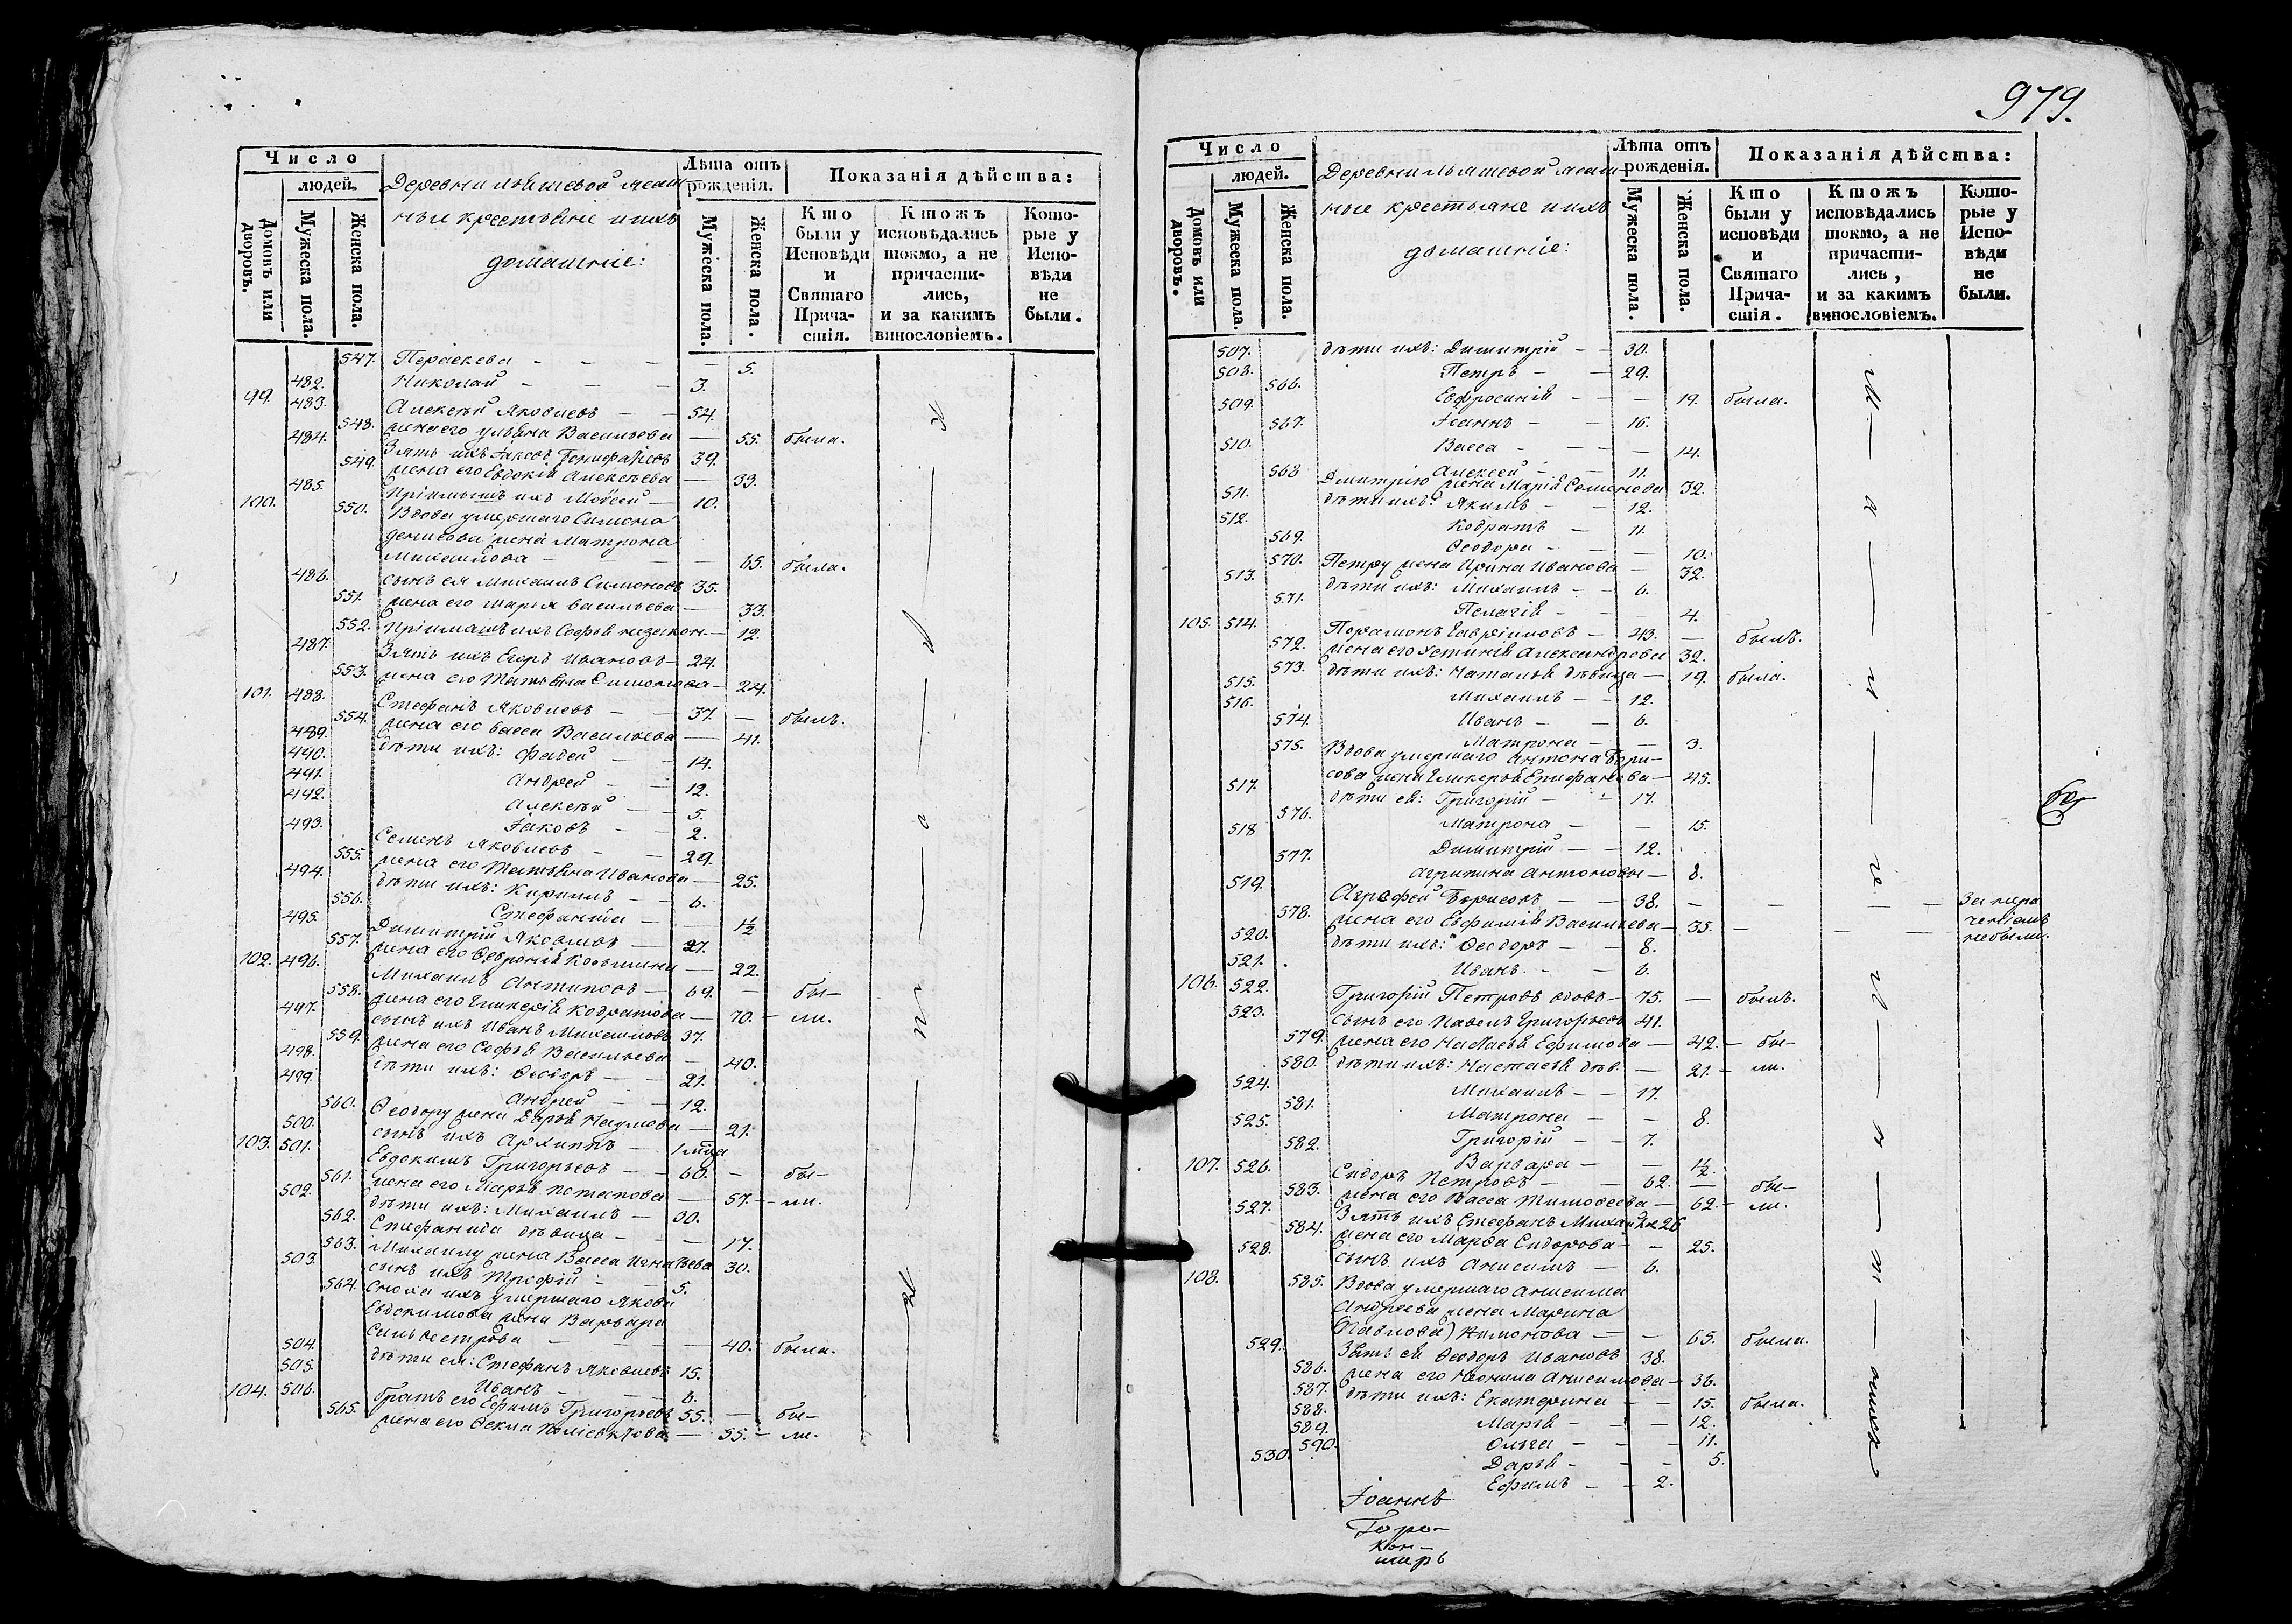 Число
людей.
Домовъ или дворовъ.
Мужеска пола.
Женска пола.
Деревни Ляшевой
крестьяне и ихъ
домашніе:
Лѣта отъ рожденія.
Мужеска пола.
Женска пола.
Показанія дѣйства:
Кто были у Исповѣди и Святаго Причастія.
Ктожъ исповѣдались токмо, а не причастились, и за какимъ винословіемъ.
Которые у Исповѣди не были.
547. Параскева — — — 5.
482. Николай — — — 3.
99. 483. Алексѣй Яковлевъ — — 54.
548. жена его Ульяна Васильева — 55. была.
484. Зять ихъ Іаковъ 39.
549. жена его Евдокія Алексѣева — 33.
485. Пріимышъ ихъ Моѵсей — 10.
100. 550. Вдова умершаго Симона
Денисова жена Матрона
Михайлова — — — 65. была.
486. сынъ ея Михаилъ Симоновъ 35.
551. жена его Марья Васильева — 33.
552. Пріимышъ ихъ Софья — 12.
487. Зять ихъ Егоръ Ивановъ — 24.
553. жена его Татьяна Симонова — 24.
101. 488. Стефанъ Яковлевъ — — 37. — былъ.
554. жена его Васса Васильева — 41.
489. дѣти ихъ: Фадей — — 14.
490. Андрей — — 12.
491. Алексѣй — — 5.
442. Іаковъ — — 2.
493. Семенъ Яковлевъ — — 29.
555. жена его Татьяна Иванова — 25.
494. дѣти ихъ: Кириллъ — — 6.
556. Стефанида — — 1½
495. Димитрій Яковлевъ — 27.
557. жена его Ѳевронія Козьмина — 22.
102. 496. Михаилъ Антиповъ — 69. — бы-
558. жена его Гликерія Кодратова — 70. — ли.
497. сынъ ихъ Иванъ Михайловъ 37.
559. жена его Софья Васильева — 40.
498. дѣти ихъ: Ѳеодоръ — — 21.
499. Андрей — — 12.
560. Ѳеодору жена Дарья Наумова — 21.
500. сынъ ихъ Архиппъ — 1
103. 501. Евдокимъ Григорьевъ — — 60. — бы-
561. жена его Марья Потапова — 57. — ли.
502. дѣти ихъ: Михаилъ — 30.
562. Стефанида дѣвица — — 17.
563. Михаилу жена Васса Игнатьева 30.
503. сынъ ихъ Трофій — — 5.
564. сноха ихъ умершаго Якова
Евдокимова жена Варвара
Сильвестрова — — — 40. была.
504. дѣти ея: Стефанъ Яковлевъ 15.
505. Иванъ — — 6.
104. 506. братъ его Ефимъ Григорьевъ 55. — бы-
565. жена его Ѳекла Поліевктова — 55. — ли.
979.
Число
людей.
Домовъ или дворовъ.
Мужеска пола.
Женска пола.
Деревни Ляшевой
ные крестьяне и ихъ
домашніе:
Лѣта отъ рожденія.
Мужеска пола.
Женска пола.
Показанія дѣйства:
Кто были у исповѣди и Святаго Причастія.
Ктожъ исповѣдались токмо, а не причастились, и за какимъ винословіемъ.
Которые у Исповѣди не были.
507. дѣти ихъ: Димитрій — — 30.
508. Петръ — — 29.
566. Евфросинія — — — 19. была.
509. Іоаннъ — — 16.
567. Васса — — — 14.
510. Алексѣй — — 11.
568 Димитрію жена Марія Семенова 32.
511. дѣти ихъ: Якимъ — — 12.
512. Кодратъ — 11.
569. Ѳеодора — — 10.
570. Петру жена Ирина Иванова — 32.
513. дѣти ихъ: Михаилъ — — 6.
571. Пелагія — — 4.
105. 514. Парамонъ Гавріиловъ — 43. — былъ.
572. жена его Устинія Александрова 32.
573. дѣти ихъ: Наталья дѣвица — 19. была.
515. Михаилъ — — 12.
516. Иванъ — — 6.
574. Матрона — — 3.
575. Вдова умершаго Антона Бори-
сова жена Гликерья Епифанова — 45.
517. дѣти ея: Григорій — — 17.
576. Матрона — — 15.
518 Димитрій — — 12.
577. Агрипина Антоновы — 8.
519. Борисовъ — — 38. — — — —
578. жена его Евфимія Васильева — 35. — — —
За нера
ченіемъ
не были.
520. дѣти ихъ: Ѳеодоръ — — 8.
521. Иванъ — — 6.
106. 522. Григорій Петровъ вдовъ — 75. — былъ.
523. сынъ его Павелъ Григорьевъ 41.
579. жена его Настасья Ефимова — 42. — бы-
580. дѣти ихъ: Настасья дѣв. — 21. — ли.
524. Михаилъ — — 17.
581. Матрона — — 8.
525. Григорій — — 7.
582. Варвара — — 1½.
107. 526. Сидоръ Петровъ — — 62. — бы-
583. жена его Васса Тимоѳеева — 62. — ли.
527. Зять ихъ Стефанъ 26
584. жена его Марѳа Сидорова — — 25.
528. сынъ ихъ Анисимъ — 6.
108. 585. Вдова умершаго Анисима
Андреева жена Марина
(Павлова) — — 65. была.
529. Зять ея Ѳеодоръ Ивановъ 38.
586. жена его Неонила Анисимова — 36.
587. дѣти ихъ: Екатерина — — 15. была.
588. Марья — — — 12.
589. Ольга — — — 11.
590. Дарья — — — 5.
530. Ефимъ — — 2.
Іоаннъ